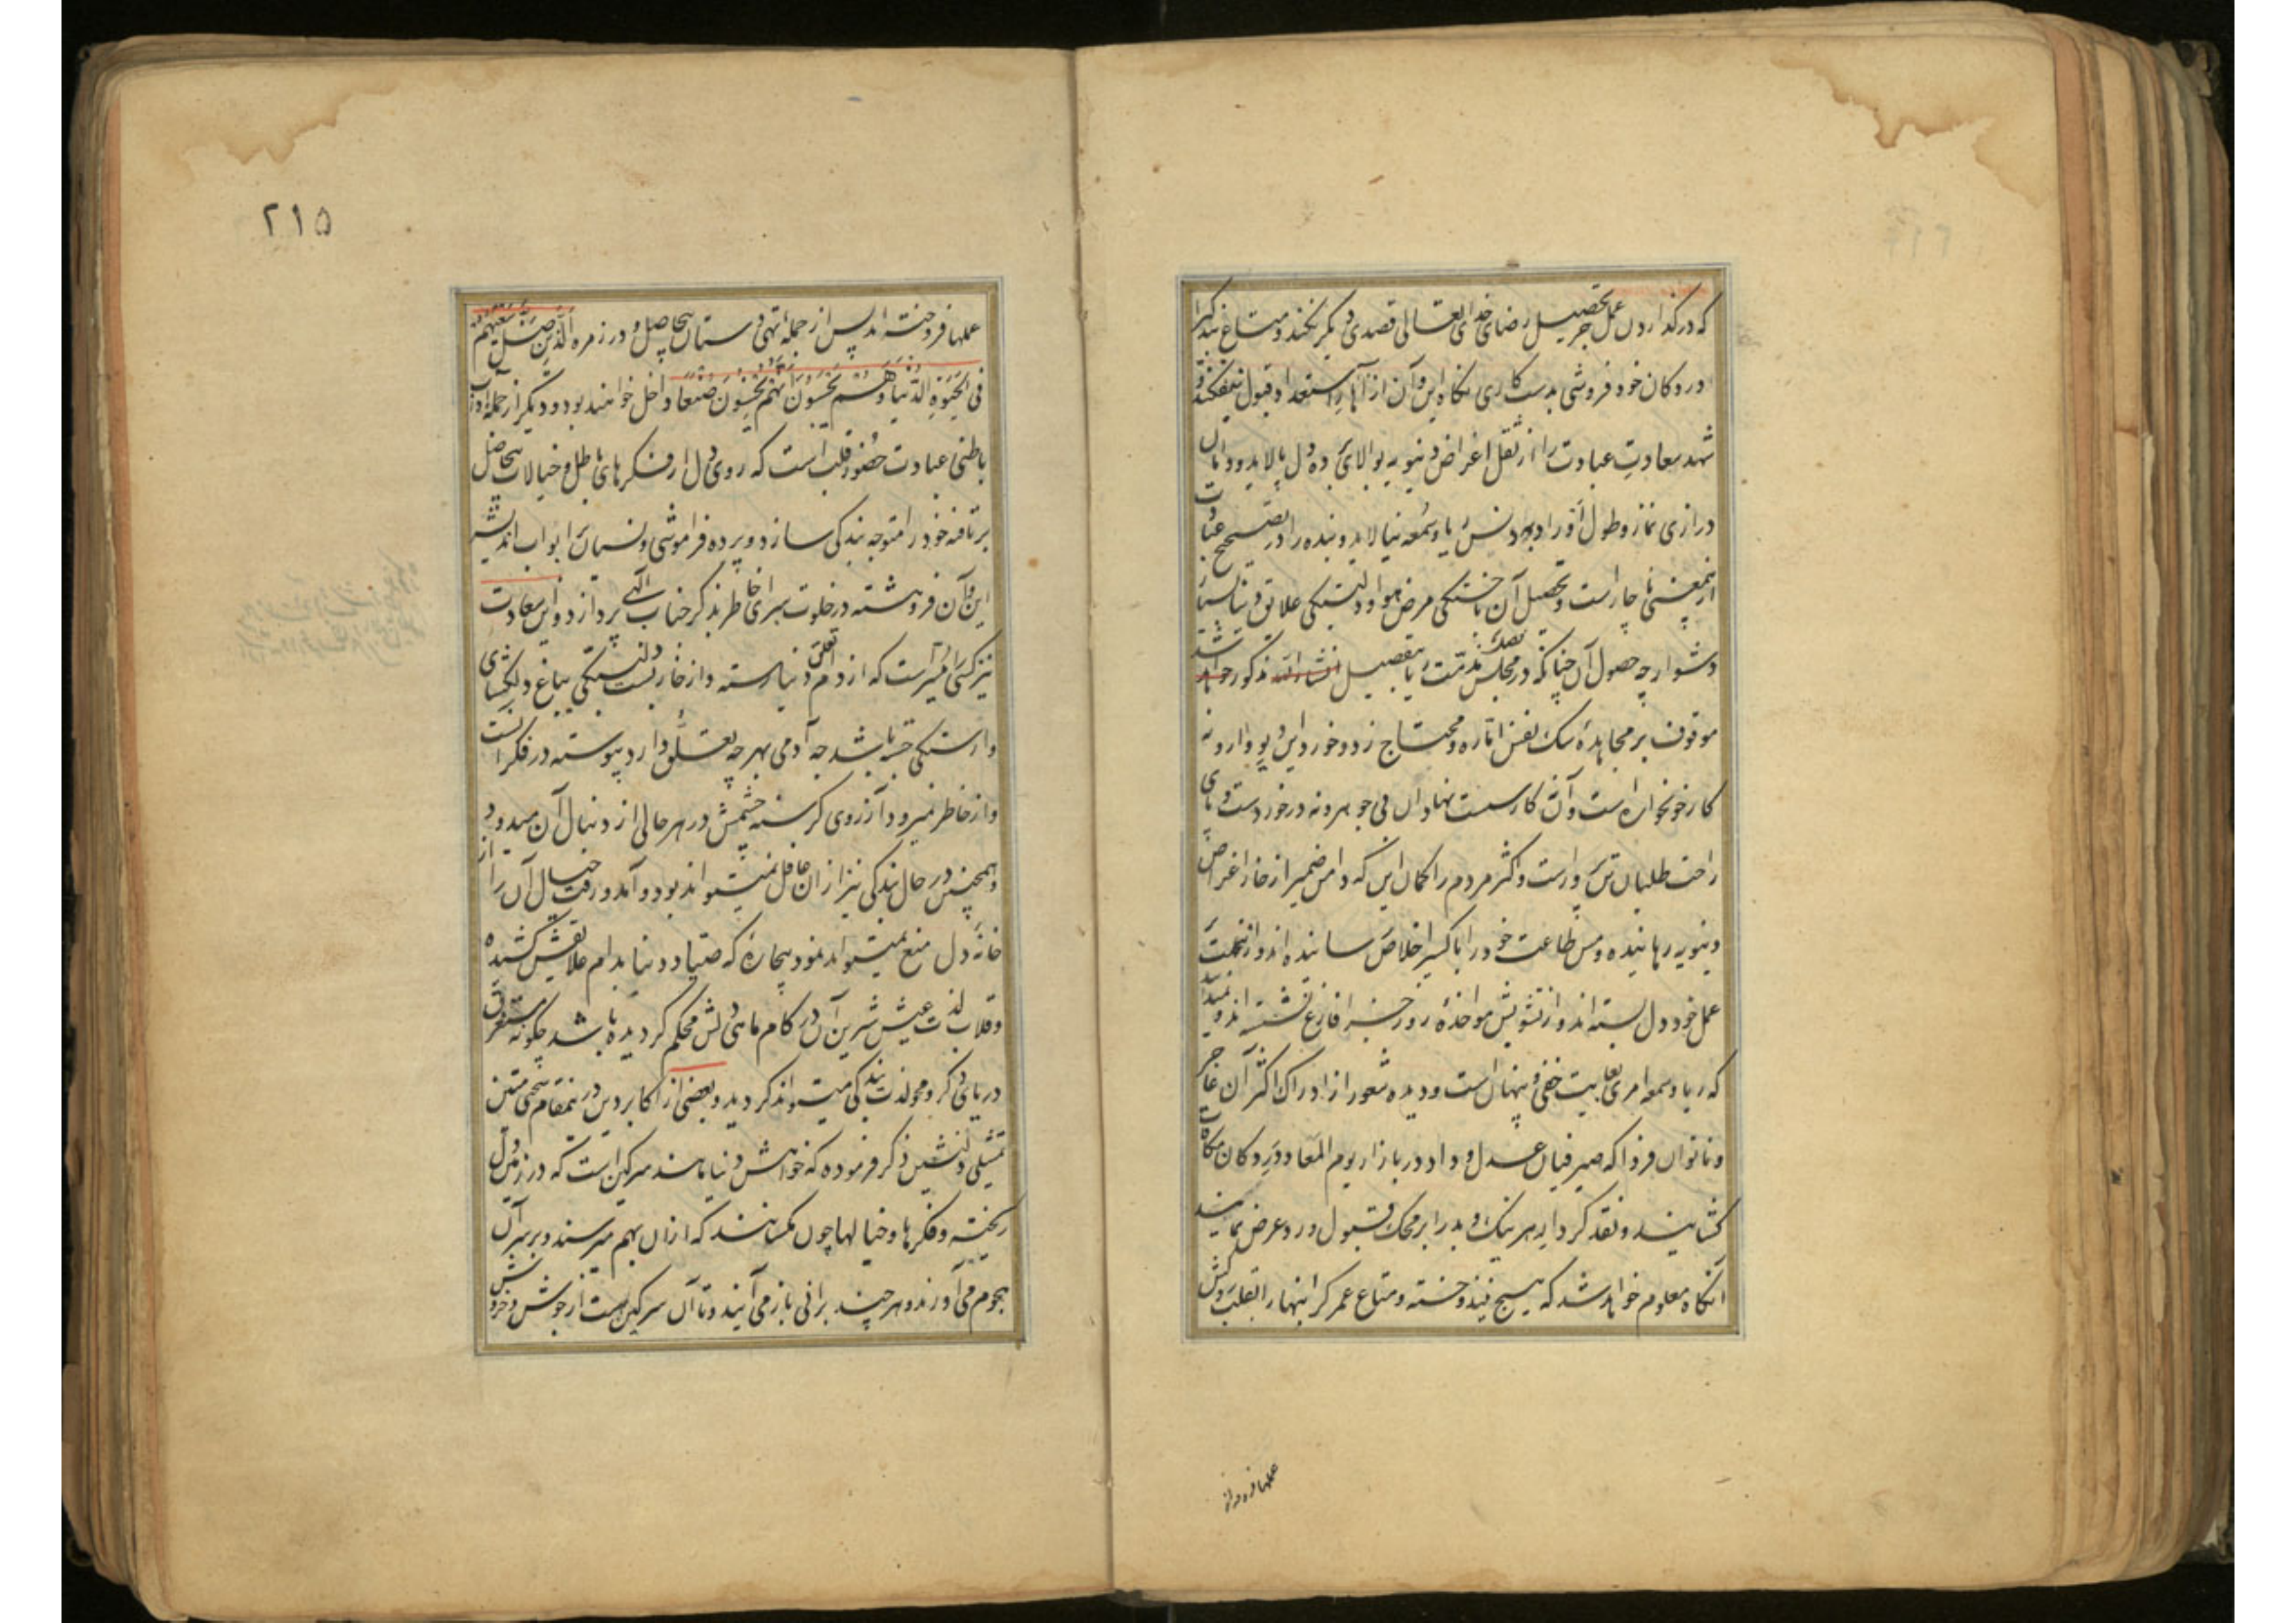 که در گذاردن عمل جز تحصیل رضای خدای تعالی قصدی دیگر نکند و متاع بندگی را
در دکان خود فروشی بدست کاری نگاه این و آن از آبداری استعداد قبول نیفکند و
شهد سعادت عبادت را از ثقل اغراض دنیویه بپالای ده دل بپالاید و دامان
درازی نماز و طول اوراد بدنس ریا و سمعه نیالاید و بنده را در تصحیح عبادت
ازینمعنی ناچار است و تحصیل آن با خستگی مرض هوا و دلبستگی علایق دنیا بسیار
دشوار چه حصول آن چنانکه در مجلس مذمت ریا بتفصیل انشاء الله مذکور خواهد شد
موقوف بر مجاهده سک نفس اماره و محتاج زد و خورد این دیو وارونه
کار خونخواره است و آن کار سست نهادان بی جوهر و نه در خورد دست و پای
راحت طلبان تن پرور است و اکثر مردم را گمان این که دامن ضمیر از خار اغراض
دنیویه رهانیده و مس طاعت خود را با کسیر اخلاص رسانیده اند و ازینجهت
عمل خود دل بسته اند و از تشویش مواخذه روز جزا فارغ نشسته اند و نمیدانند
که ریا و سمعه امری بغایت خفی و پنهان است و دیده شعور از ادراک اکثر آن عاجز
و ناتوان فردا که صیرفیان عدل و داد در بازار یوم المعاد در دکان مکافات
گشایند و نقد کردار هر نیک و بد را بر محک قبول و رد عرض نمایند
آنگاه معلوم خواهد شد که هیچ نیندوخته و متاع عمر گرانبها را بقلب روکش
عملها فروخته
۲۱۵
عملها فروخته اند پس از جمله تهی دستان بیحاصل و در زمره الذین ضل سعیهم
فی الحیوة الدنیا و هم یحسبون انهم یحسنون صنعا داخل خواهند بود و دیگر از جمله آداب
باطنی عبادت حضور قلب است که روی دل از فکرهای باطل و خیالات بیحاصل
بر تافته خود را متوجه بندگی سازد و پرده فراموشی و نسیان بر ابواب اندیشه
این و آن فروهشته در خلوت سرای خاطر بذکر جناب الهی پردازد و این سعادت
نیز کسی را میسر است که از دام تعلق دنیا رسته و از خار بست دلبستگی بباغ دلگشای
وارستگی جسته باشد چه آدمی بهر چه تعلق دارد پیوسته در فکر آنست
و از خاطر نمیرود و آرزوی گرسنه چشمش در هر حالی از دنبال آن میدود
و همچنین در حال بندگی نیز از آن غافل نمیتواند بود و آمد و رفت خیال آن را از
خانه دل منع نمیتواند نمود بیچاره که صیاد دنیا بدام علایقش کشیده
و قلاب لذت عیش شیرین آن در کام ماهی دلش محکم گردیده باشد چگونه مستغرق
دریای ذکر و محو لذت بندگی میتواند گردید و بعضی از اکابر دین درینمقام سخنی متین
تمثیلی دلنشین ذکر فرموده که خواهش دنیا مانند سرگین است که در زمین دل
ریخته و فکرها و خیالها چون مکسانند که از آن بهم میرسند و بر سر آن
هجوم می آورند و هر چند برانی باز می آیند و تا آن سرگین هست از جوش و خروش